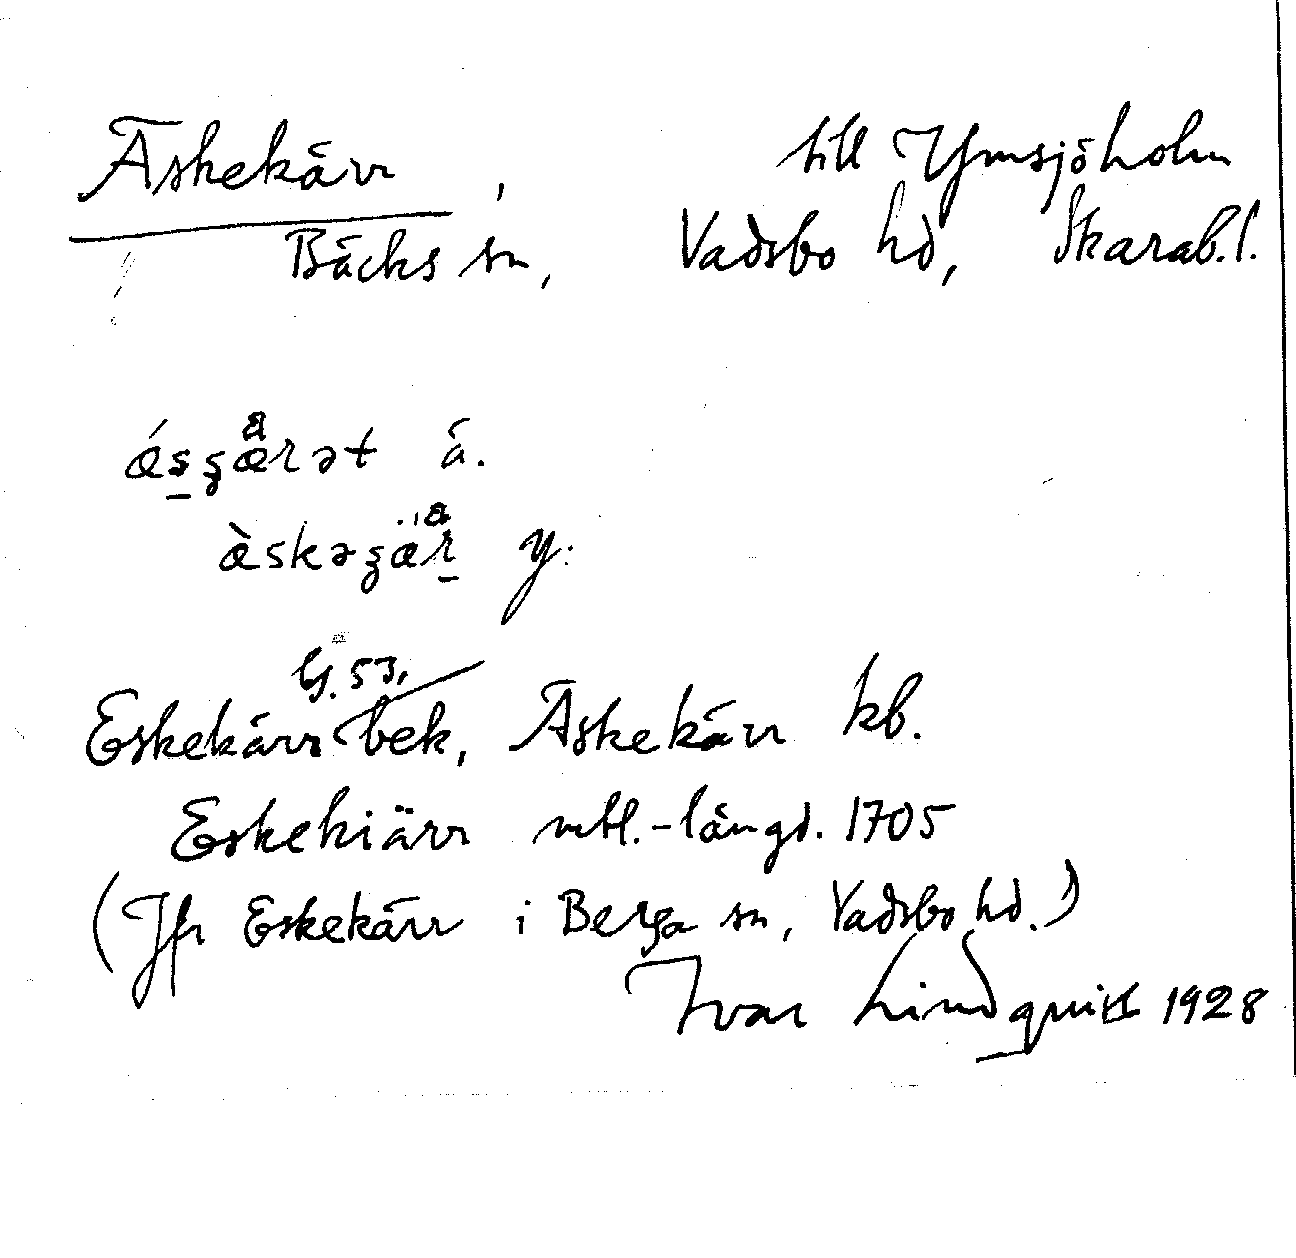 Äskekärr, till Ymsjöholm
Bäcks sn, Vadsbo hd, Skarab. l.
å.
y.
G. 53,
Eskekärr bek, Äskekärr kb.
Eskekiärr mtl.-längd. 1705
(Jfr Eskekärr i Berga sn, Vadsbo hd.)
Ivar Lindquist 1928